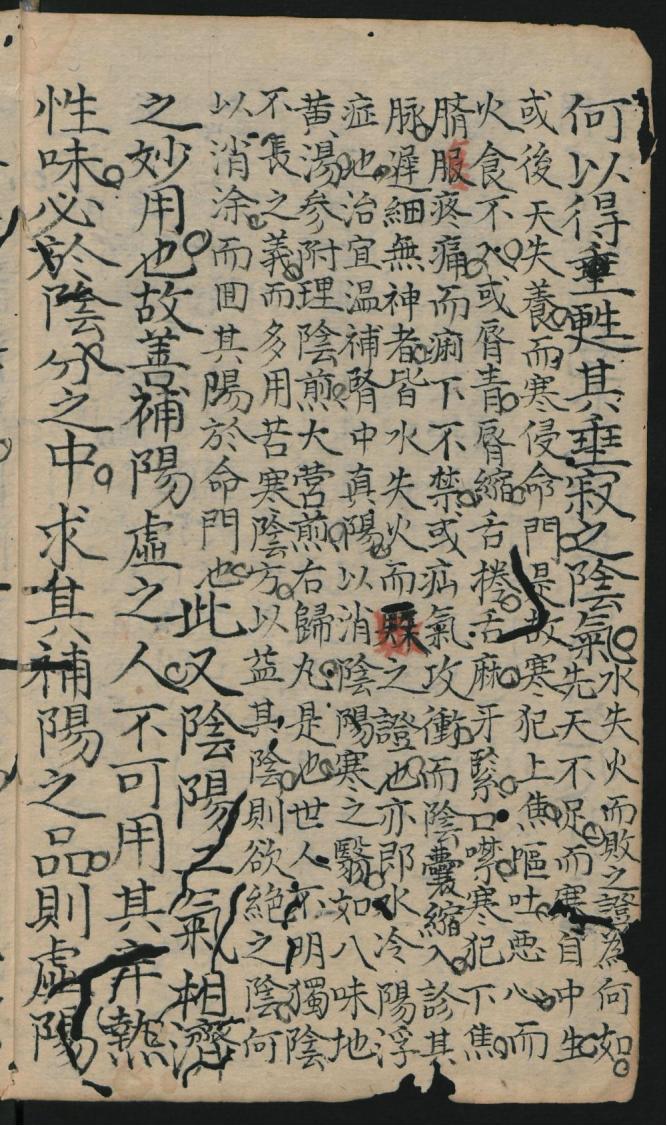 何以得重甦其垂寂之陰氣
水失火而敗之證為何如
先天不足而寒自中生
或後天失養而寒侵命門是故寒犯上焦嘔吐悪心而
火食不入或唇青唇縮舌捲舌麻牙緊口噤寒犯下焦
臍服疼痛而痢下不禁或疝氣攻衝而陰囊縮入診其
脉遲細無神者皆水失火而之證也亦即水冷陽浮
症也治宜温補腎中真陽以消陰陽寒之翳如八味地
黄湯參附理陰煎大营煎右歸丸是也世人不明獨陰
不長之義而多用苦寒陰方以益其陰則欲絶之陰何
以消涂而囬其陽於命門也此又陰陽二氣相濟
之妙用也故善補陽虛之人不可用其辛熱
性味必於陰分之中求其補陽之品則虛陽